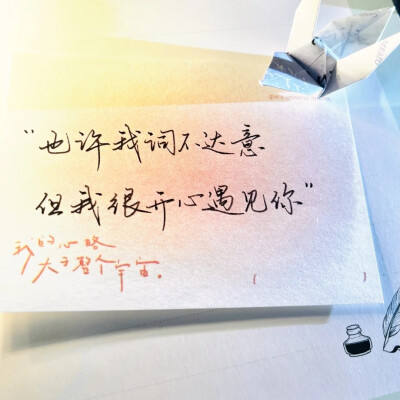 “也许我词不达意
但我很开心遇见你”
我的心略
大于整个宇宙。
（ ）